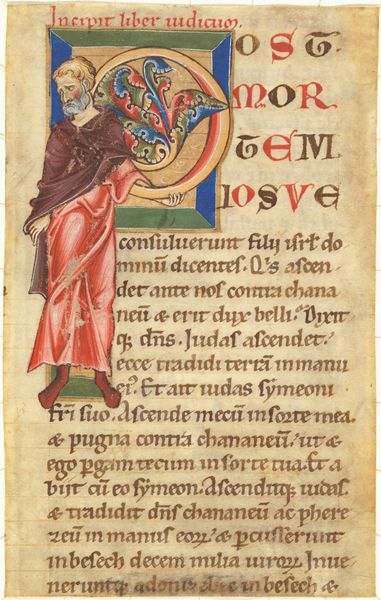 Incipit liber iudicum.
OST
MOR
TEM
IOSVE
consuluerunt filii isrl do
minum dicentes. Qis ascen
det ante nos contra chana
neum & erit dux belli. Dixit
q; dns. Iudas ascendet.
ecce tradidi terram in manu
ei9. Et ait iudas symeoni
fri suo. Ascende mecum in sorte mea.
& pugna contra chananeum. ut &
ego pgam tecum in sorte tua. Et a
biit cu eo symeon. Ascenditq; iudas.
& tradidit dns chananeum ac phere
zeum in manus eorum & pcusserunt
in besech decem milia virorum. Inue
neruntq; in besech &